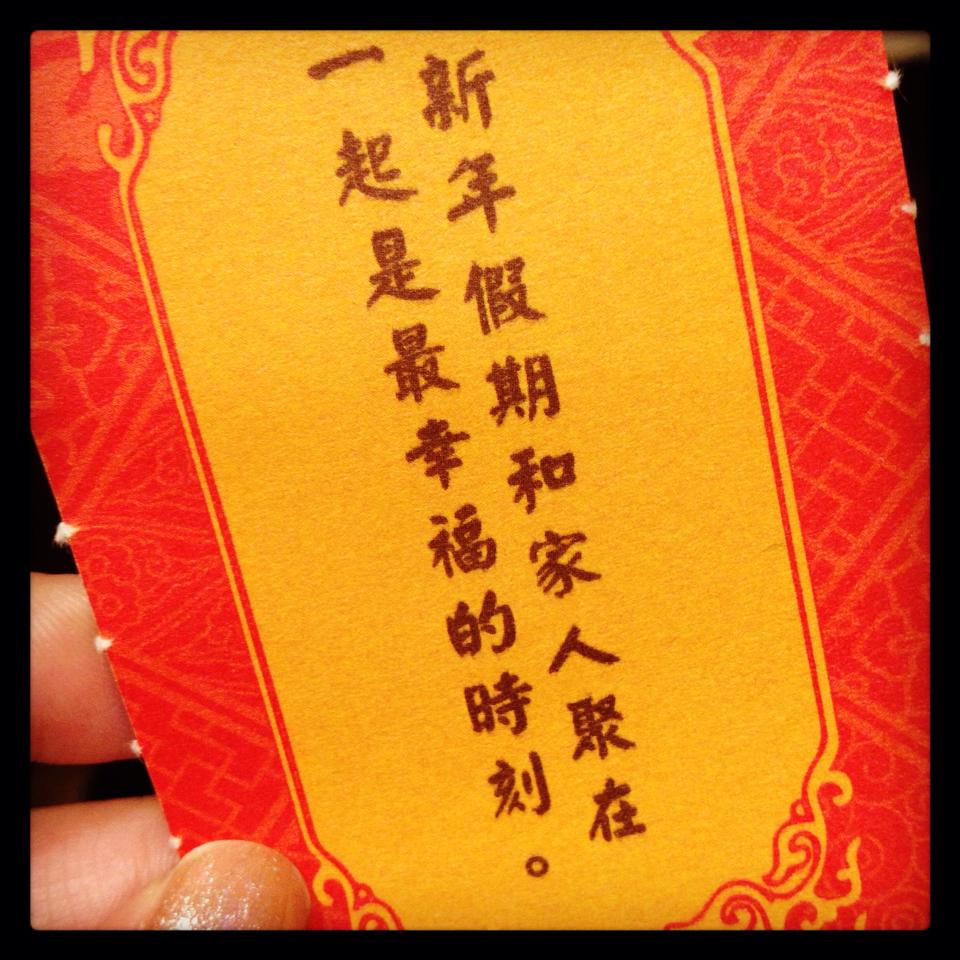 新年假期和家人聚在
一起是最幸福的時刻。